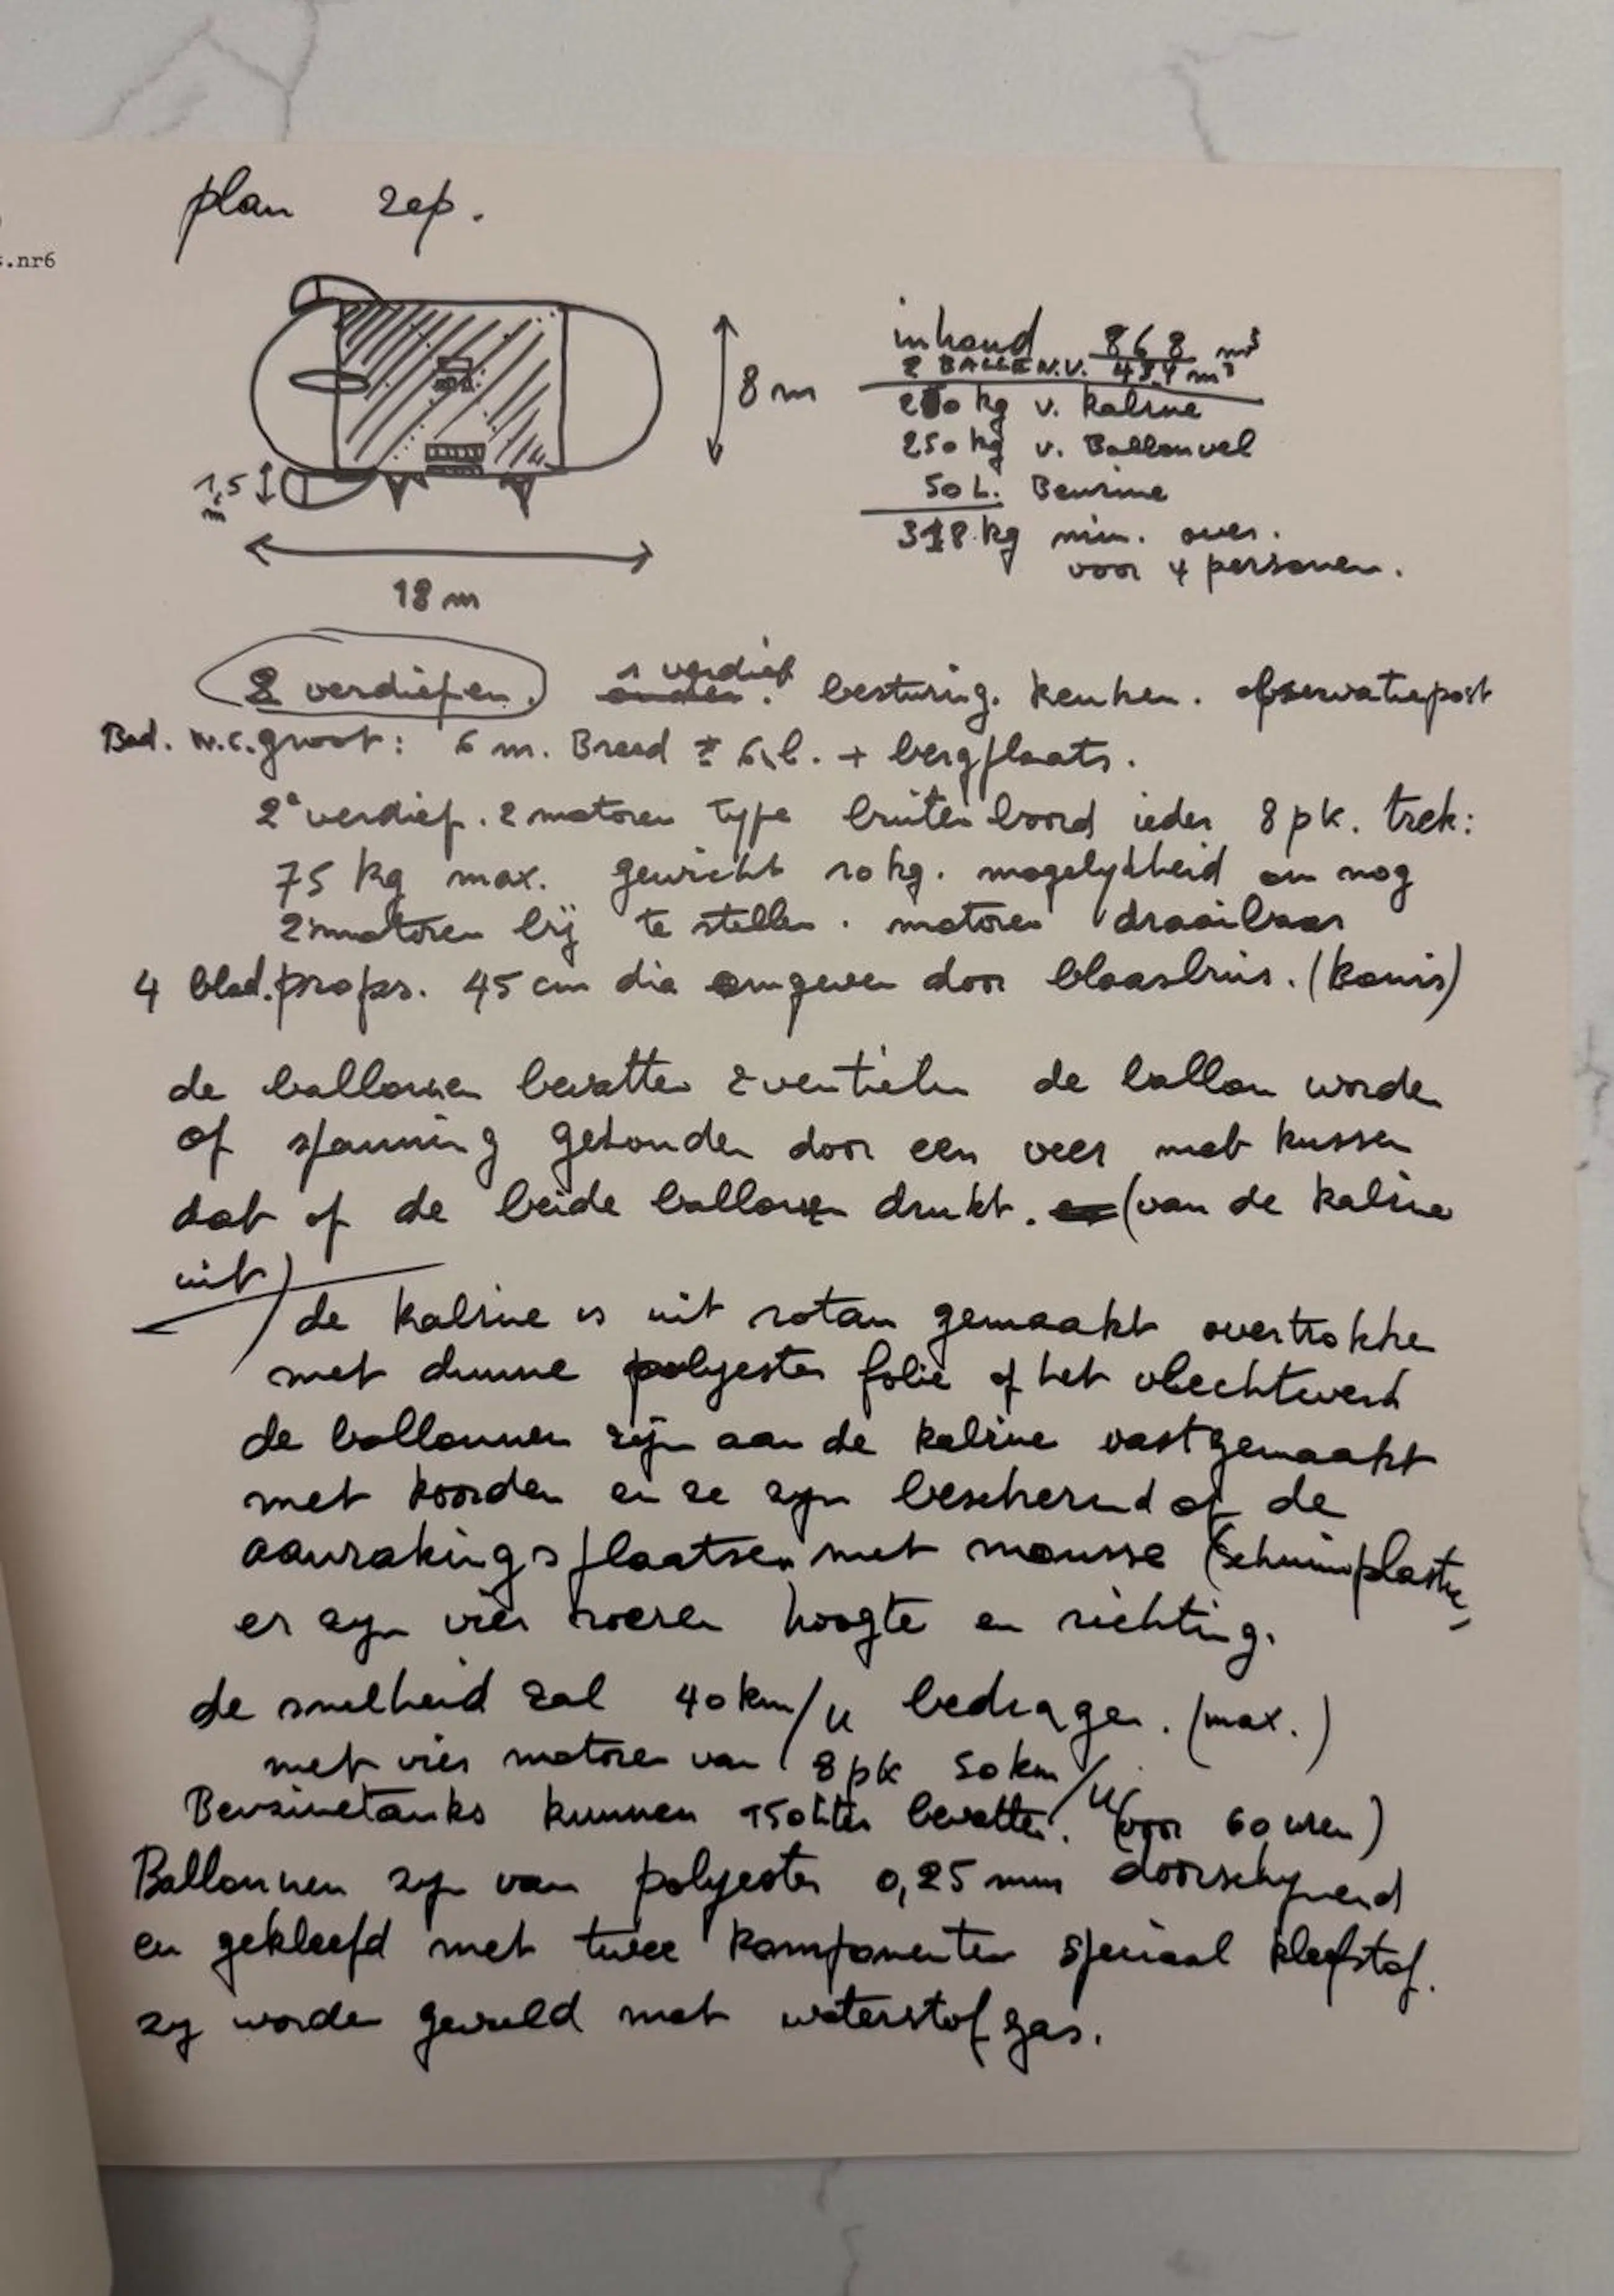 plan zep.
s.nr6
inhoud 868 m³
2 BALLEN.V. 434 m³
250 kg v. kabine
250 kg v. Ballonvel
50 L. Benzine
318 kg min. over.
voor 4 personen.
8 m
1,5 m
18 m
2 verdiepen. 1 verdief besturing. keuken. observatiepost
Bad. W.C. groot: 6 m. Breed ± 6 l. + bergplaats.
2e verdief. 2 motoren type buitenboord ieder 8 pk. trek:
75 kg max. gewicht 10 kg. mogelykheid om nog
2 motoren bij te stellen. motoren draaibaar
4 blad. props. 45 cm dia omgeven door blaasbuis. (Konis)
de ballonnen bevatten 2 ventielen de ballon worden
op spanning gehouden door een veer met kussen
dat op de beide ballonnen drukt. (van de kabine
uit)
de kabine is uit rotan gemaakt overtrokken
met dunne polyester folie op het vlechtwerk
de ballonnen zijn aan de kabine vastgemaakt
met koorden en ze zyn beschermd op de
aanrakingsplaatsen met mousse (schuimplastic,
er zyn vier roeren hoogte en richting.
de snelheid zal 40 km/u bedragen. (max.)
met vier motoren van 8 pk 50 km/u.
Benzinetanks kunnen 150 liter bevatten. (voor 60 uren)
Ballonnen zyn van polyester 0,25 mm doorschynend
en gekleefd met twee komponenten speciaal kleefstof.
zy worden gevuld met waterstof gas.